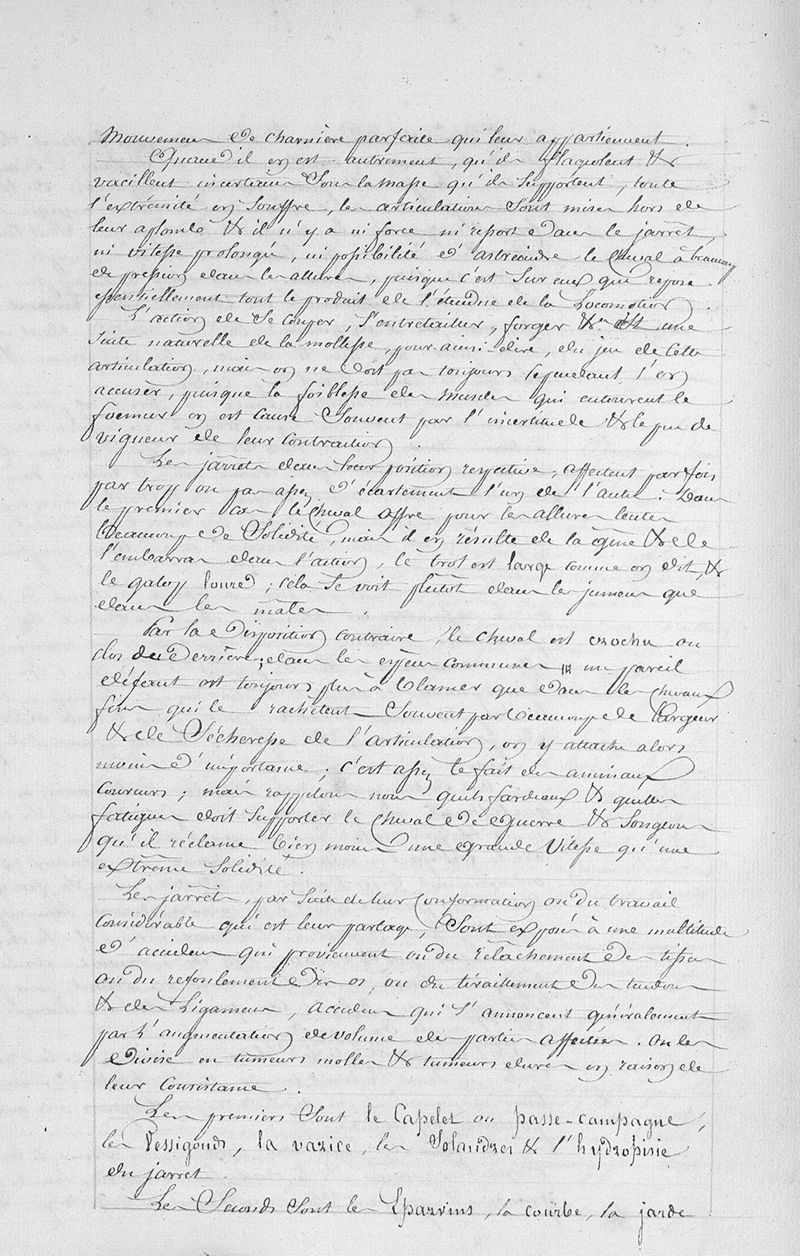 Mouvemens de charnière parfaite qui leur appartiennent.
Quand il en est autrement, qu'ils flageolent &
vacillent incertains sous la masse qu'ils supportent, toute
l'extrémité en souffre, les articulations sont mises hors de
leur aplomb & il n'y a ni force ni ressort dans le jarret,
ni vitesse prolongée, ni possibilité d'astreindre le cheval à beaucoup
de pression dans les allures, puisque c'est sur eux que repose
essentiellement tout le produit de l'étendue de la Locomotion.
L'action de se couper, s'entretailler, forger &a est une
suite naturelle de la mollesse, pour ainsi dire, du jeu de cette
articulation, mais on ne doit pas toujours cependant l'en
accuser, puisque la foiblesse des muscles qui entourent le
femur en est cause souvent par l'incertitude & le peu de
vigueur de leur contraction.
Les jarrets dans leur position respective, affectent parfois
par trop ou pas assez d'écartement l'un de l'autre: Dans
le premier cas le cheval offre pour les allures lentes
beaucoup de solidité, mais il en résulte de la gêne & de
l'embarras dans l'action, le trot est large comme on dit, &
le galop lourd; cela se voit plutôt dans les jumens que
dans les mâles.
Par la disposition contraire, le cheval est crochu ou
clos de derrière; dans les espèces communes un pareil
défaut est toujours plus à blamer que dans les chevaux
fins qui le rachètent souvent par beaucoup de largeur
& de sécheresse de l'articulation, on y attache alors
moins d'importance; c'est assez le fait des animaux
coureurs; mais rappelons nous quels fardeaux & quelles
fatigues doit supporter le cheval de Guerre & songeons
qu'il réclame bien moins une grande vitesse qu'une
extrême solidité.
Les jarrets, par suite de leur conformation ou du travail
considérable qui est leur partage, sont exposés à une multitude
d'accidens qui proviennent ou du relâchement des tissus
ou du refoulement des os, ou du tiraillement des tendons
& des Ligamens, accidens qui s'annoncent généralement
par l'augmentation de volume des parties affectées. On les
divise en tumeurs molles & tumeurs dures en raison de
leur consistance.
Les premiers sont le Capelet ou passe-campagne,
les Vessigonds, la varice, les Solandres & l'hydropisie
du jarret.
Les Seconds sont les Eparvins, la courbe, la jarde